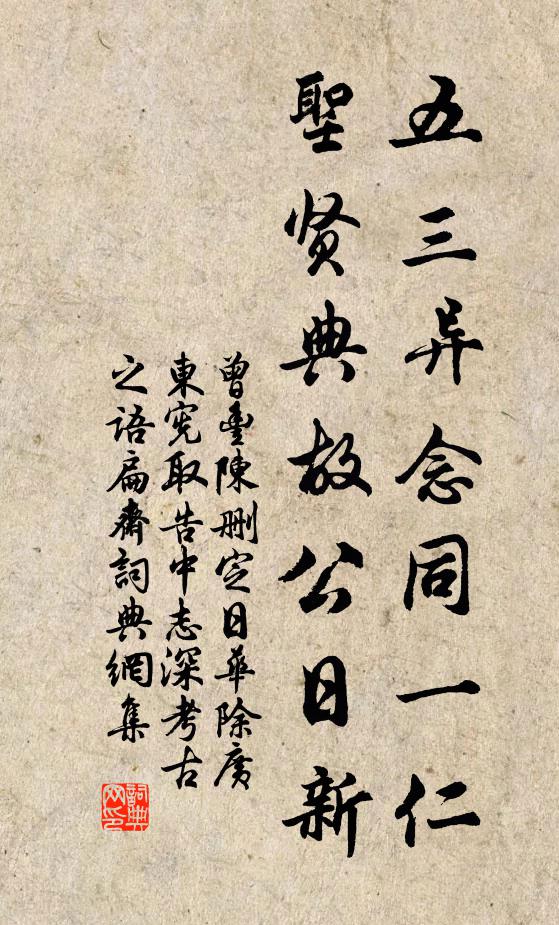 五三异念同一仁
聖贤典故公日新
曾豊陳删定日華除廣
東宪取告中志深考古
之語扁齋詞典網集
詞典网印